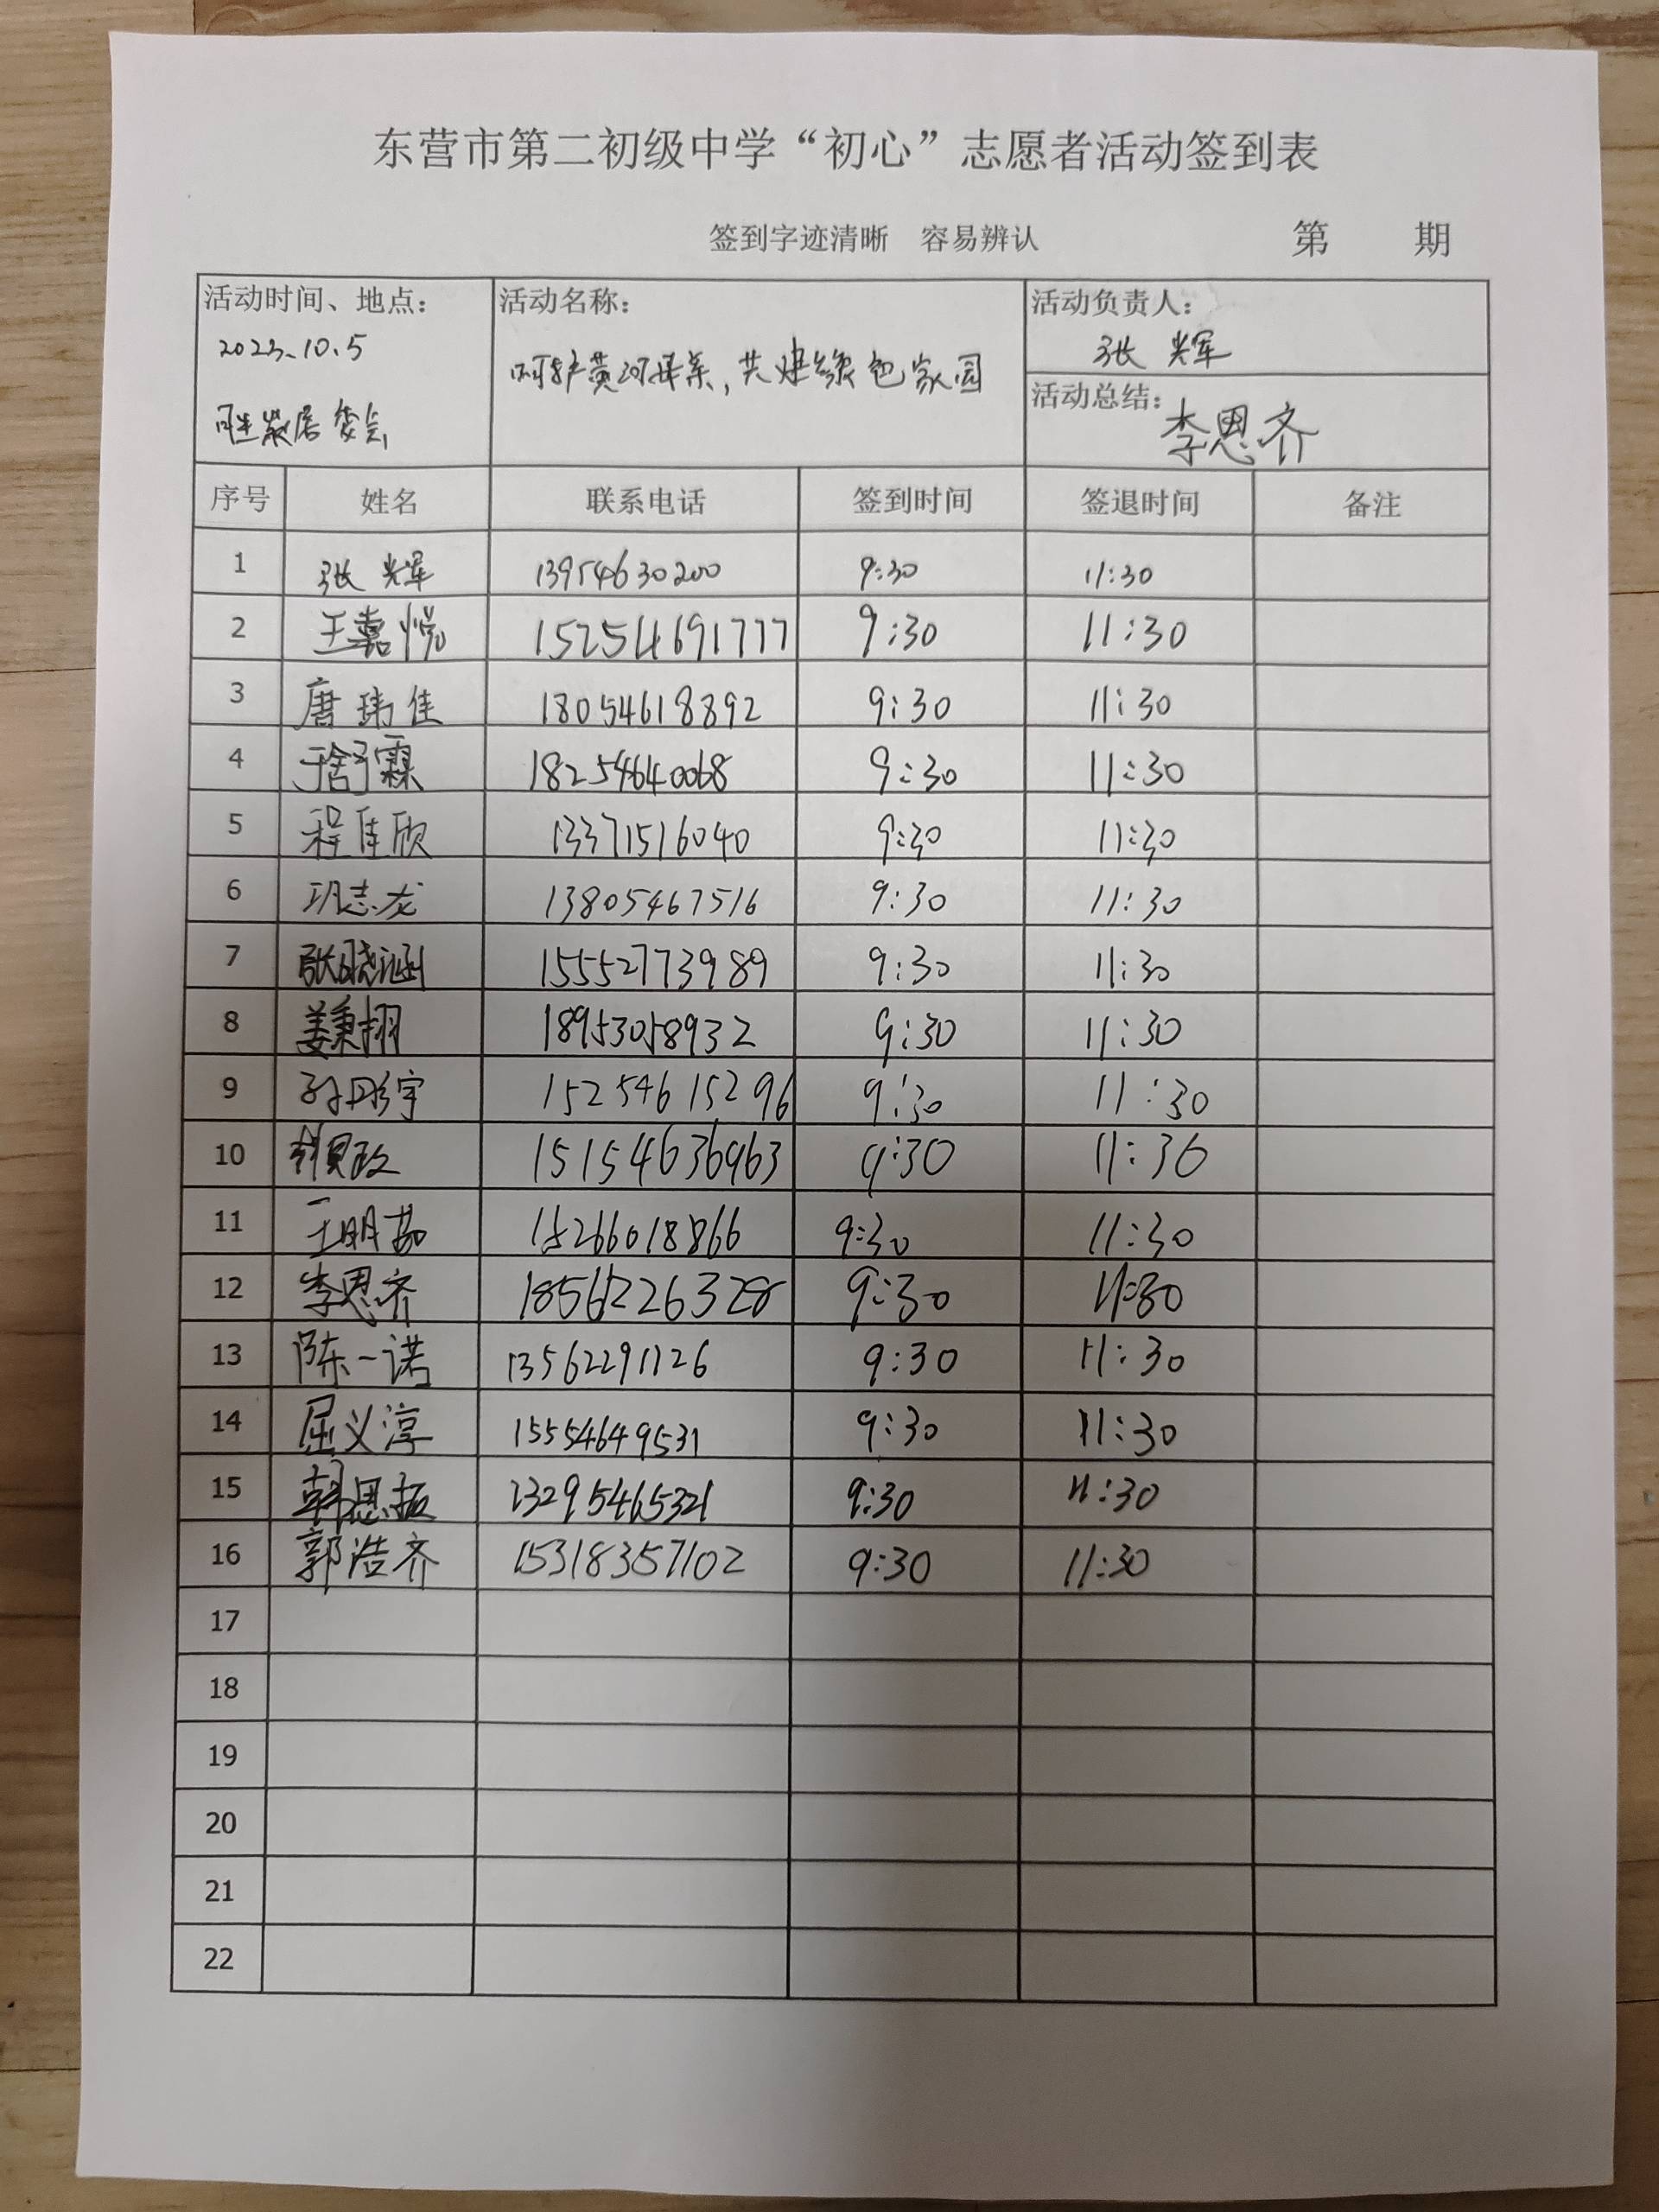 东营市第二初级中学“初心”志愿者活动签到表
签到字迹清晰 容易辨认 第 期
活动时间、地点： 活动名称： 活动负责人：
2023.10.5 呵护黄河母亲，共建绿色家园 张辉
居委会 活动总结：李恩齐
序号 姓名 联系电话 签到时间 签退时间 备注
1 张辉 13954630200 9:30 11:30
2 王嘉悦 15254691777 9:30 11:30
3 唐玮佳 18054618892 9:30 11:30
4 于舒霖 18254640068 9:30 11:30
5 程佳欣 13371516040 9:30 11:30
6 志龙 13805467516 9:30 11:30
7 张晓涵 15552773989 9:30 11:30
8 姜秉栩 18953058932 9:30 11:30
9 孙彤宇 15254615296 9:30 11:30
10 15154636963 9:30 11:30
11 王明茹 15266018866 9:30 11:30
12 李恩齐 18561226328 9:30 11:30
13 陈一诺 13562291126 9:30 11:30
14 屈义淳 15554649531 9:30 11:30
15 韩恩振 13295465321 9:30 11:30
16 郭浩齐 15318357102 9:30 11:30
17
18
19
20
21
22